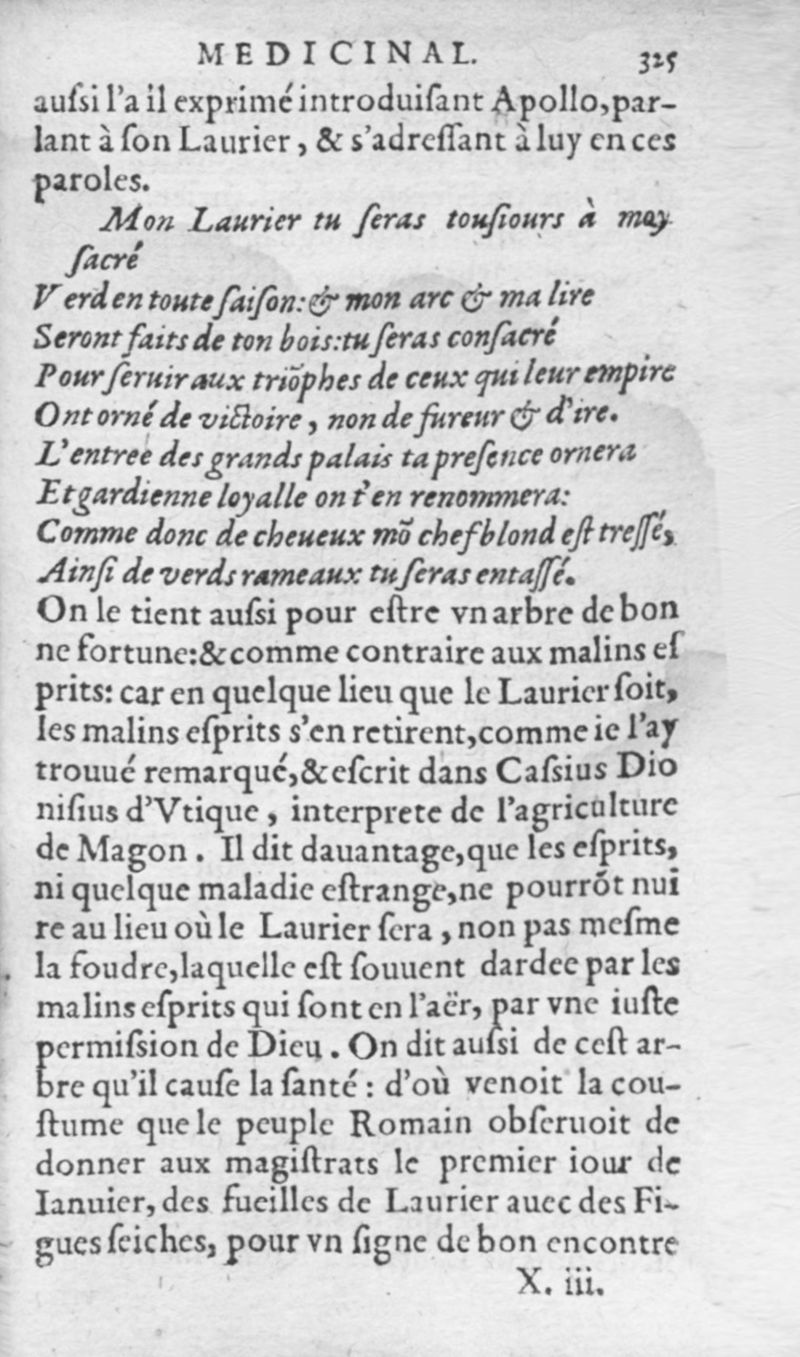 MEDICINAL. 325
auſsi l'a il exprimé introduiſant Apollo, par-
lant à ſon Laurier, & s'adreſſant à luy en ces
paroles.
Mon Laurier tu ſeras touſiours à moy
ſacré
Verd en toute ſaiſon: & mon arc & ma lire
Seront faits de ton bois: tu ſeras conſacré
Pour ſeruir aux triõphes de ceux qui leur empire
Ont orné de victoire, non de fureur & d'ire.
L'entree des grands palais ta preſence ornera
Et gardienne loyalle on t'en renommera:
Comme donc de cheueux mõ chef blond eſt treſſé,
Ainſi de verds rameaux tu ſeras entaſſé.
On le tient auſsi pour eſtre vn arbre de bon
ne fortune: & comme contraire aux malins eſ
prits: car en quelque lieu que le Laurier ſoit,
les malins eſprits s'en retirent, comme ie l'ay
trouué remarqué, & eſcrit dans Caſsius Dio
niſius d'Vtique, interprete de l'agriculture
de Magon. Il dit dauantage, que les eſprits,
ni quelque maladie eſtrange, ne pourrõt nui
re au lieu où le Laurier ſera, non pas meſme
la foudre, laquelle eſt ſouuent dardee par les
malins eſprits qui ſont en l'aër, par vne iuſte
permiſsion de Dieu. On dit auſsi de ceſt ar-
bre qu'il cauſe la ſanté: d'où venoit la cou-
ſtume que le peuple Romain obſeruoit de
donner aux magiſtrats le premier iour de
Ianuier, des fueilles de Laurier auec des Fi-
gues ſeiches, pour vn ſigne de bon encontre
X. iii.